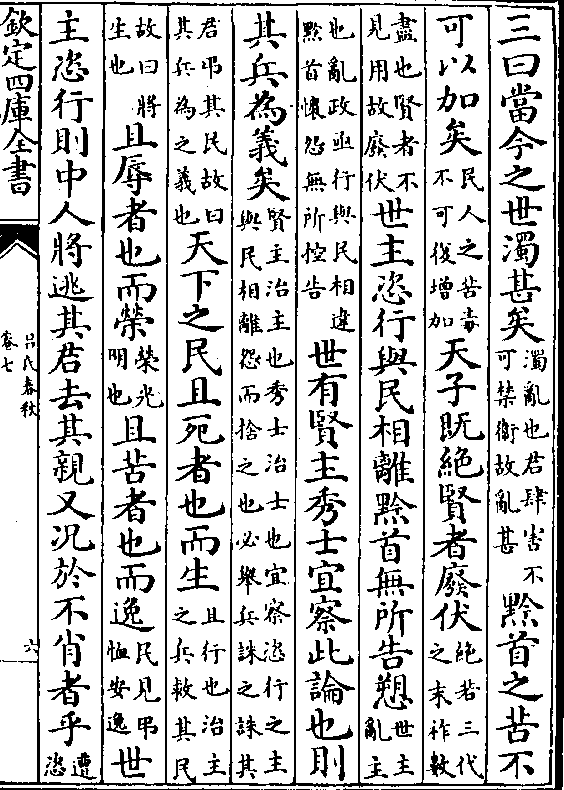 三曰當今之世濁甚矣濁亂也君肆害不可禁衛故亂甚黔首之苦不
可以加矣民人之苦毒不可復增加天子既絕賢者廢伏絕若三代之末祚數
盡也賢者不見用故廢伏世主恣行與民相離黔首無所告愬世主亂主
也亂政亟行與民相違黔首懷怨無所控告世有賢主秀士宜察此論也則
其兵為義矣賢主治主也秀士治士也宜察恣行之主與民相離怨而捨之也必舉兵誅之誅其
君弔其民故曰其兵為之義也天下之民且死者也而生且行也治主之兵救其民
故曰將生也且辱者也而榮榮光明也且苦者也而逸民見弔恤安逸世
主恣行則中人將逃其君去其親又況於不肖者乎遭恣
欽定四庫全書
呂氏春秋
卷七
六